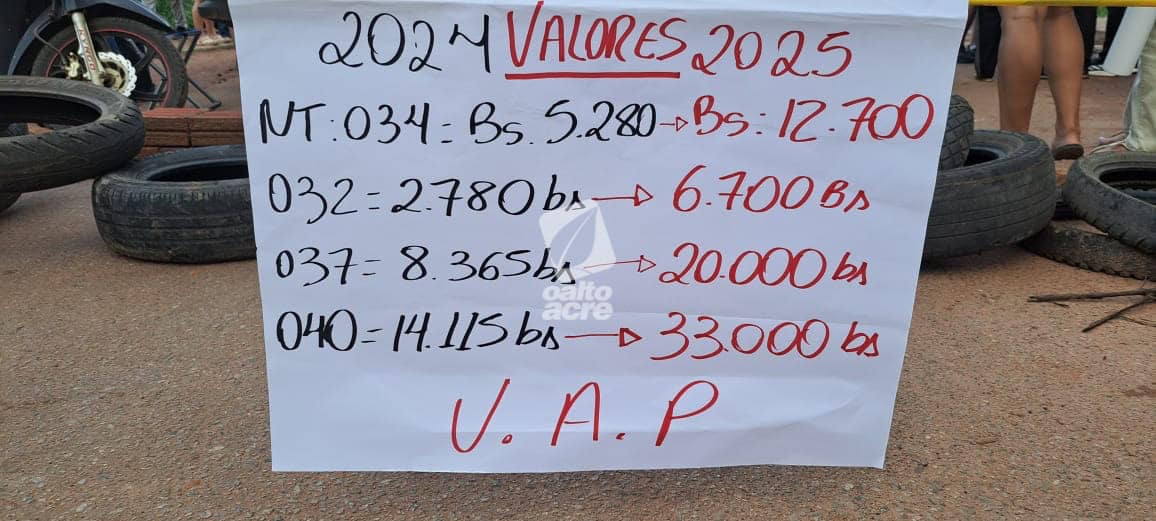 2024 VALORES 2025
NT:034= Bs. 5.280→Bs: 12.700
032=2.780bs→6.700Bs
037=8.365bs→20.000bs
040=14.115bs→33.000bs
U. A. P
oalto
acre